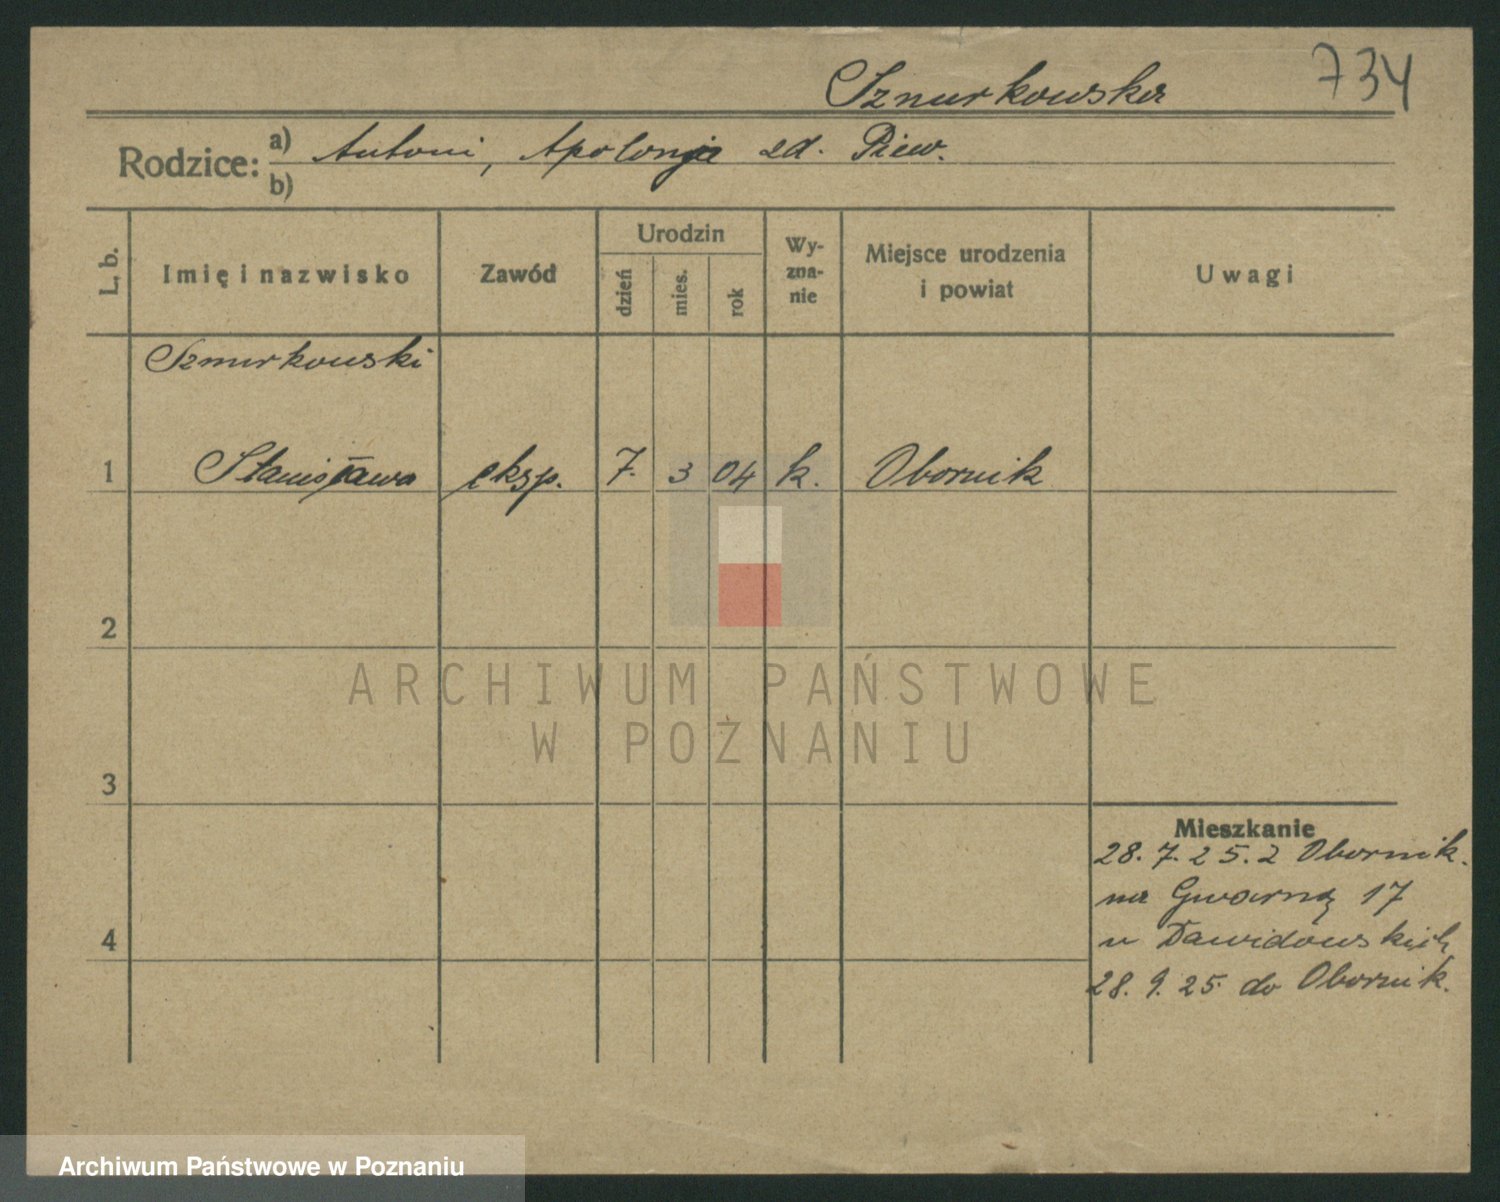 Sznurkowska 734
Rodzice: a) Antoni, Apolonja zd. Piew.
b)
L. b. Imię i nazwisko Zawód Urodzin dzień mies. rok Wy-zna-nie Miejsce urodzenia i powiat Uwagi
Sznurkowski
1 Stanisława eksp. 7. 3 04 k. Obornik
2
3
Mieszkanie
28. 7. 25. z Obornik.
na Gwarną 17
4
u Dawidowskich
28. 9. 25 do Obornik.
ARCHIWUM PAŃSTWOWE
W POZNANIU
Archiwum Państwowe w Poznaniu